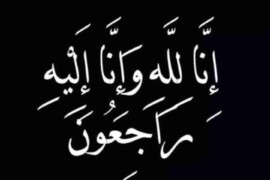 إنَّا للَّه وَإنَّا إلَيْهِ
رَاجَعُونَ